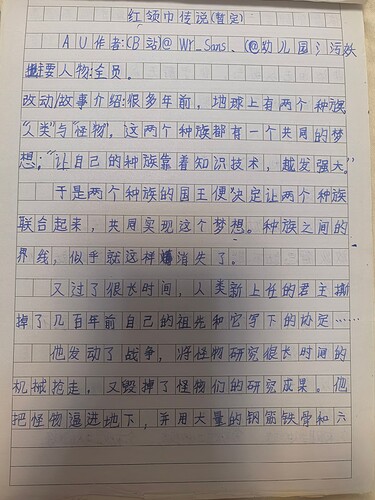 红领巾传说(暂定)
AU作者:(B站)@Wr_Sans、(@幼儿园)污妖
主要人物:全员。
改动/故事介绍:很多年前,地球上有两个种族
“人类”与“怪物”,这两个种族都有一个共同的梦
想:“让自己的种族靠着知识技术,越发强大”
于是两个种族的国王便决定让两个种族
联合起来,共同实现这个梦想。种族之间的
界线,似乎就这样消失了。
又过了很长时间,人类新上任的君主撕
掉了几百年前自己的祖先和它写下的协定……
他发动了战争,将怪物研究很长时间的
机械抢走,又毁掉了怪物们的研究成果。他
把怪物逼进地下,并用大量的钢筋铁骨和六